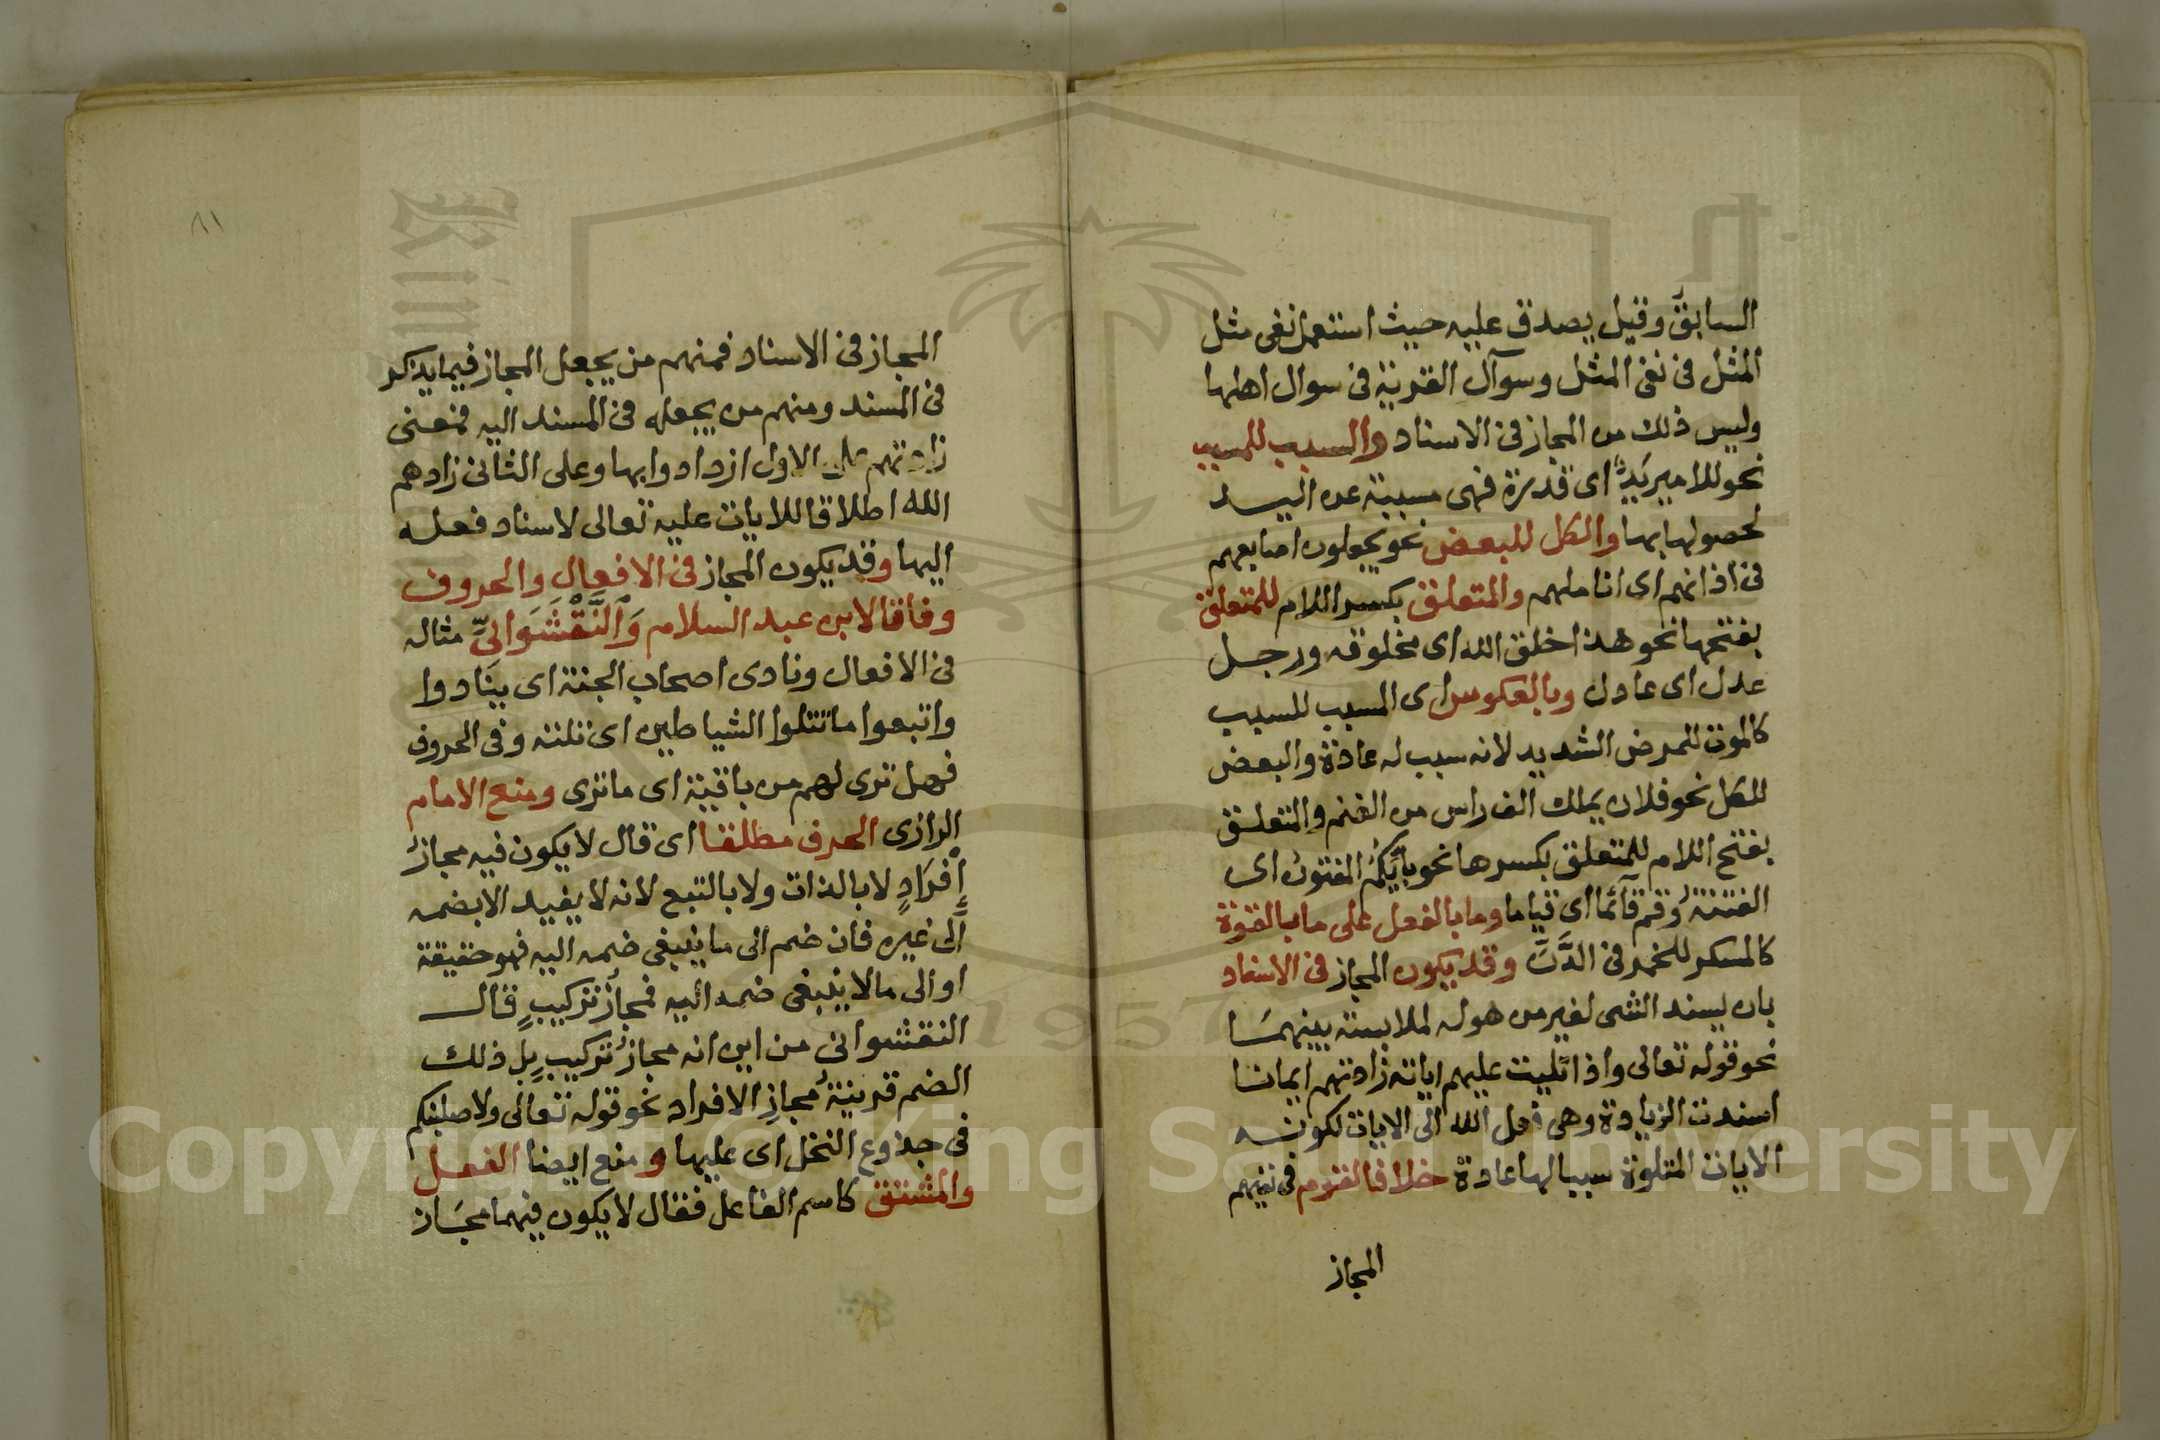 السابق وقيل يصدق عليه حيث استعمل نفى مثل
المثل فى نفى المثل وسوآل القرية فى سوال اهلها
وليس ذلك من المجاز فى الاسناد والسبب للمسبب
نحو للامير يَدٌ اى قدرة فهى مسببة عن اليد
لحصولها بها والكل للبعض نحو يجعلون اصابعهم
فى اذانهم اى اناملهم والمتعلق بكسر اللام للمتعلق
بفتحها نحو هذا خلق الله اى مخلوقه ورجل
عدل اى عادل وبالعكوس اى المسبب للسبب
كالموت للمرض الشديد لانه سبب له عادة والبعض
للكل نحو فلان يملك الف راس من الغنم والمتعلق
بفتح اللام للمتعلق بكسرها نحو بأيّكم المفتون اى
الفتنة وقم قآئما اى قياما وما بالفعل على ما بالقوة
كالمسكر للخمر فى الدَّنّ وقد يكون المجاز فى الاسناد
بان يسند الشى لغير من هو له لملابسة بينهما
نحو قوله تعالى واذا تليت عليهم اياته زادتهم ايمانا
اسندت الزيادة وهى فعل الله الى الايات لكون
الايات المتلوة سببا لها عادة خلافا لقوم فى نفيهم
المجاز
٨١
المجاز فى الاسناد فمنهم من يجعل المجاز فيما يذكر
فى المسند ومنهم من يجعله فى المسند اليه فمعنى
زادتهم على الاول ازدادوا بها وعلى الثانى زادهم
الله اطلاقا للايات عليه تعالى لاسناد فعله
اليها وقد يكون المجاز فى الافعال والحروف
وفاقا لابن عبد السلام وَالنَّقْشَوَانِيِّ مثاله
فى الافعال ونادى اصحاب الجنة اى ينادوا
واتبعوا ما تتلوا الشياطين اى تلته وفى الحروف
فهل ترى لهم من باقية اى ما ترى ومنع الامام
الرازى الحرف مطلقا اى قال لا يكون فيه مجازُ
إِفْرَادٍ لا بالذات ولا بالتبع لانه لا يفيد الا بضمه
الى غيره فان ضم الى ما ينبغى ضمه اليه فهو حقيقة
او الى مالا ينبغى ضمه اليه فمجازُ تركيبٍ قال
النقشوانى من اين انه مجازُ تركيبٍ بل ذلك
الضم قرينةُ مجازِ الافراد نحو قوله تعالى ولاصلبنكم
فى جذوع النخل اى عليها ومنع ايضا الفعل
والمشتق كاسم الفاعل فقال لا يكون فيهما مجَاز
1957
Copyright © King Saud University